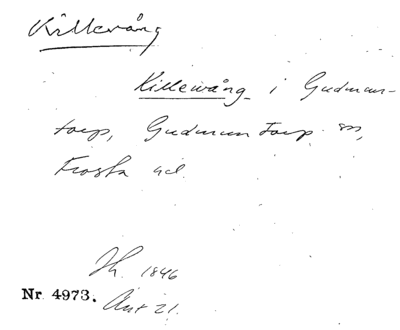 Killevång
Killewång i Gudmun-
torp, Gudmuntorp sn,
Frosta hd.
Th. 1846
Nr 4973. Ant 21.